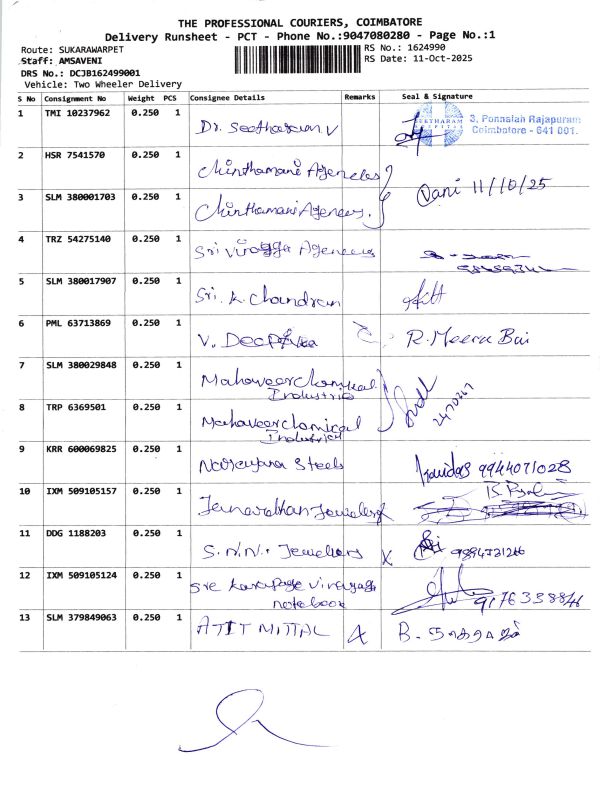 THE PROFESSIONAL COURIERS, COIMBATORE
Delivery Runsheet - PCT - Phone No.:9047080280 - Page No.:1
Route: SUKARAWARPET
RS No.: 1624990
Staff: AMSAVENI
RS Date: 11-Oct-2025
DRS No.: DCJB162499001
Vehicle: Two Wheeler Delivery
S No Consignment No Weight PCS Consignee Details Remarks Seal & Signature
1 TMI 10237962 0.250 1 Dr. Seetharam V
SEETHARAM HOSPITAL
3, Ponnaiah Rajapuram
Coimbatore - 641 001.
2 HSR 7541570 0.250 1 Chinthamani Agencies
3 SLM 380001703 0.250 1 Chinthamani Agencies. Vani 11/10/25
4 TRZ 54275140 0.250 1 Sri Agencies
5 SLM 380017907 0.250 1 Sri. K. Chandran
6 PML 63713869 0.250 1 V. Deepika R. Meera Bai
7 SLM 380029848 0.250 1 Mahaveer Chemical
Industries
8 TRP 6369501 0.250 1 Mahaveer Chemical
Industries
9 KRR 600069825 0.250 1 Narayana Steels 9944071028
10 IXM 509105157 0.250 1 Janarathan Jewellers
11 DDG 1188203 0.250 1 S.N.N. Jewellers X
12 IXM 509105124 0.250 1 Sre Karpaga Vinayaga
note book
13 SLM 379849063 0.250 1 ATIT MITTAL X B.